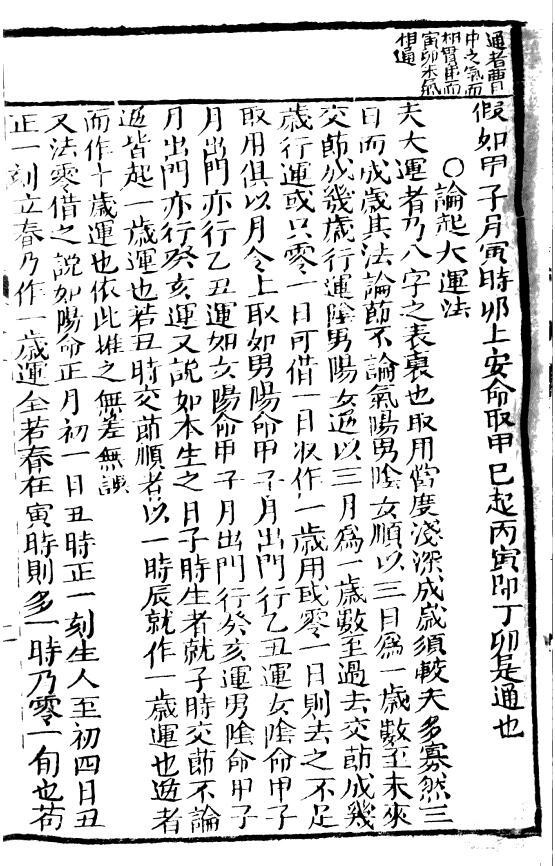 通者曹
中之氣而
柳貫串而
寅卯未氣
相通
假如甲子月寅時卯上安命取甲巳起丙寅即丁卯是通也
○論起大運法
夫大運者乃八字之表裏也取用當度淺深成歲須較夫多寡然三
日而成歲其法論節不論氣陽男陰女順以三日為一歲數至未來
交節成幾歲行運陰男陽女逆以三月為一歲數至過去交節成幾
歲行運或只零一日可借一日湊作一歲用或零一日則去之不足
取用俱以月令上取如男陽命甲子月出門行乙丑運女陰命甲子
月出門亦行乙丑運如女陽命甲子月出門行癸亥運男陰命甲子
月出門亦行癸亥運又說如本生之日子時生者就子時交節不論
逆皆起一歲運也若丑時交節順者以一時辰就作一歲運也逆者
而作十歲運也依此推之無差無誤
又法零借之說如陽命正月初一日丑時正一刻生人至初四日丑
正一刻立春乃作一歲運全若春在寅時則多一時乃零一旬也苟